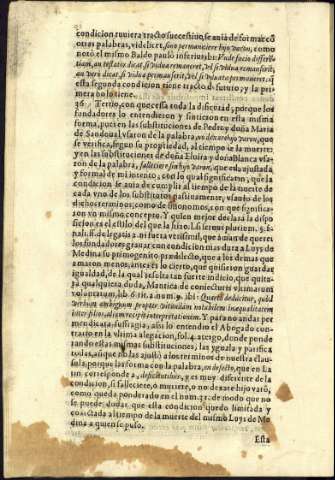 condicion tuviera tracto succesiuo, se auia de formar cõ
otras palabras, videlicet, sino permaneciere hijo varon, como
notò el mismo Baldo paulò inferius, ibi: Vnde facio differe
tiam, an testator dicat, si vidua remanserit, vel si vidua permanserit,
esta segunda condicion tiene tracto de futuro, y la pri
mera no lo tiene.
36 Tertio, con que cessa toda la dificultad, porque los
fundadores lo entendieron y sintieron en esta misma
forma, pues en las substituciones de Pedro y doña Maria
de Sandoual vsaron de la palabra, no dexare hijo varon, que
se verifica, segun su propriedad, al tiempo de la muerte:
y en las substituciones de doña Eluira y doña Blanca vsa-
ron de la palabra, falleciere sin hijo varon, que es la ajustada
y formal de mi intento, con lo qual significaron, que la
condicion se auia de cumplir al tiempo de la muerte de
cada vno de los substitutos passiuamente, vsando de los
dichos terminos, como de sinonomos, con que significa-
ron vn mismo concepto. Y quien mejor declara la dispo
sicion, es el estilo del que la hizo. l. si seruus plurium. §. fi-
nali, ff. de legatis
los fundadores grauar con condicion mas dura a Luys de
Medina su primogenito, predilecto, que a los demas que
amaron menos, antes es lo cierto, que quisieron guardar
igualdad, de la qual resulta tan fuerte indicio, que quita-
ra qualquiera duda, Mantica de coniecturis vltimarum
voluntatum, lib. 6. tit. 2. num. 9. ibi: Quartò deducitur, quòd
verbum ambiguum propter vitandam
inter filios, aliam recipit interpretationem. Y para no andar
mendicando sufragia, assi lo entendio el Abogado con-
trario en la vltima alegacion, fol. 4. atergo, donde ponde
rando estas mismas substituciones, las yguala y parifica
todas, aunque no las ajustò a los terminos de nuestra clau-
sula, porque las forma con la palabra, en defecto, que en La
tin corresponde a, deficientibus, y es muy diferente de la
condicion, si falleciere, o muriere, o no dexare hijo varõ,
como queda ponderado en el num. 31. de modo que no
se puede dudar que esta condicion quedò limitada y
coartada al tiempo de la muerte del mismo Luys de Me
dina a quien se puso.
Esta